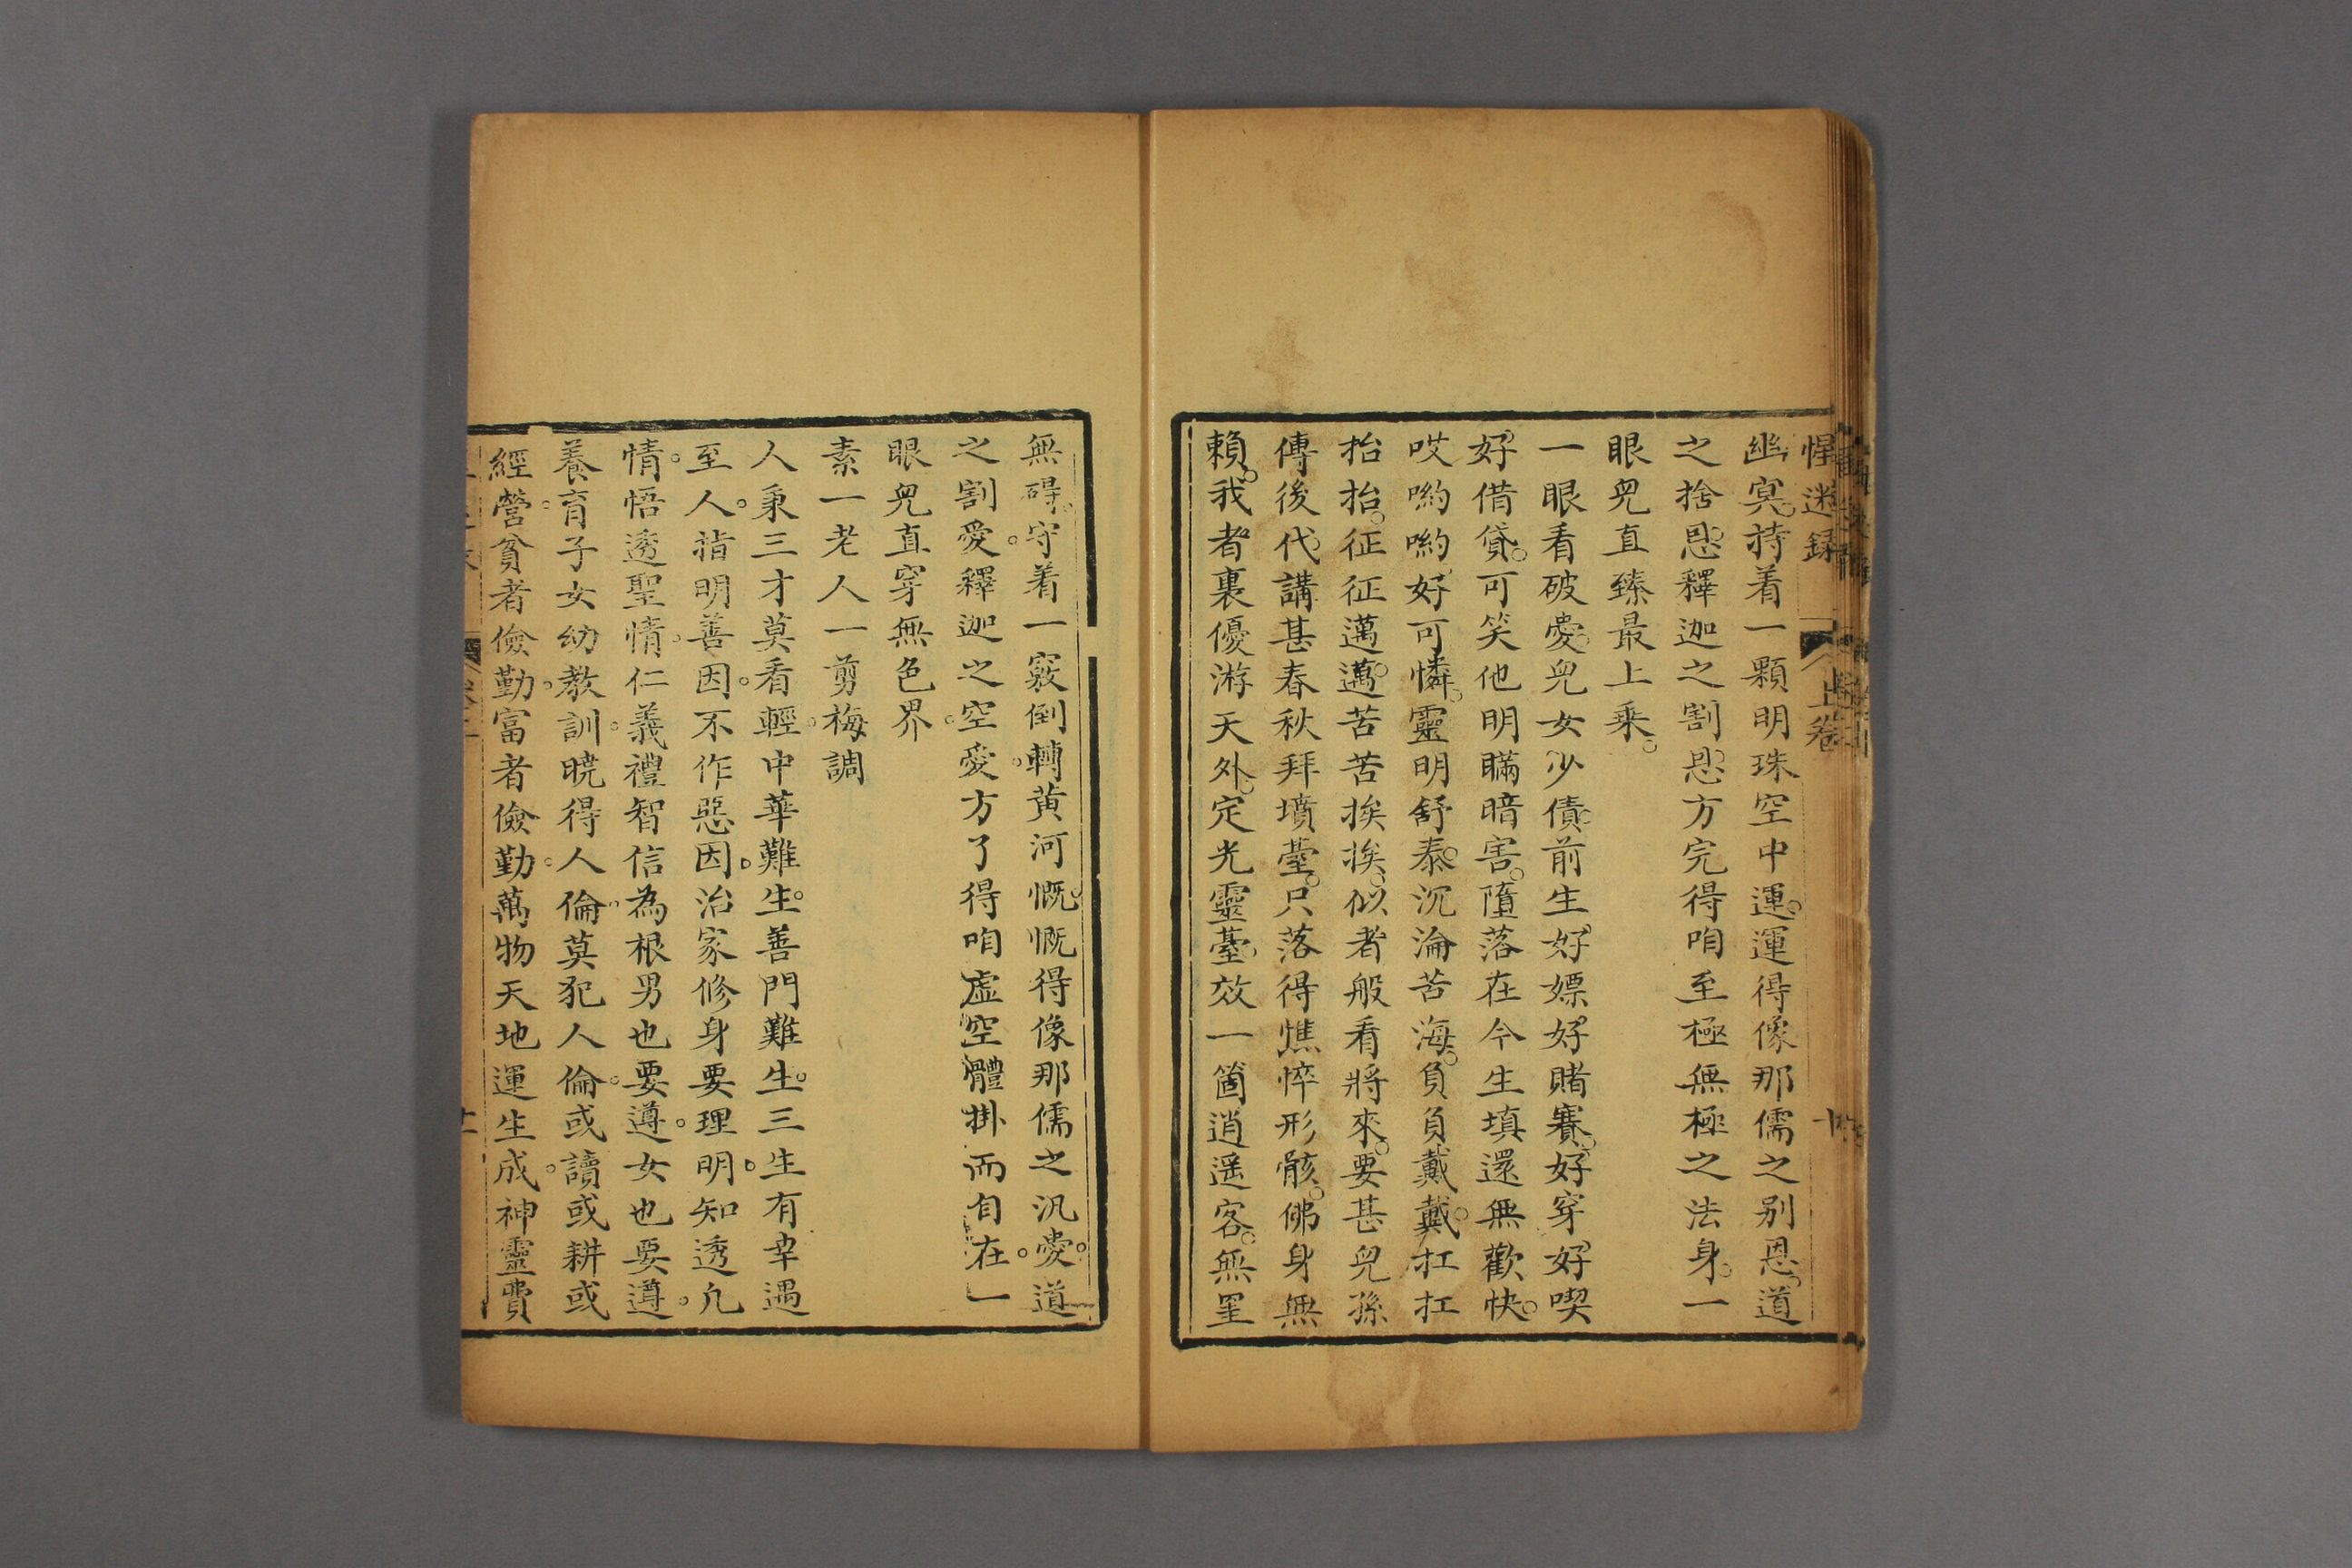 惺迷錄 上卷 十
幽㝠。持着一顆明珠空中運。運得像那儒之別恩。道
之捨恩。釋迦之割恩。方完得咱至極無極之法身。一
眼皃直臻最上乘。
一眼看破。愛皃女少債。前生好嫖。好賭賽。好穿好喫
好借貸。可笑他明瞞暗害。墮落在今生填還無歡快。
哎喲喲。好可憐。靈明舒泰。沉淪苦海。負負戴戴。扛扛
抬抬。征征邁邁。苦苦挨挨。似者般看將來。要甚皃孫
傳後代。講甚春秋拜墳臺。只落得憔悴形骸。佛身無
賴。我者裏優游天外。定光靈臺。效一箇逍遥客。無罣
無碍。守着一竅倒轉黃河。慨慨得像那儒之汎愛。道
之割愛。釋迦之空愛。方了得咱虛空體掛而自在。一
眼皃直穿無色界。
素一老人一剪梅調
人秉三才莫看輕。中華難生。善門難生。三生有幸遇
至人。指明善因。不作惡因。治家修身要理明。知透凢
情。悟透聖情。仁義禮智信為根。男也要遵。女也要遵。
養育子女幼教訓。曉得人倫。莫犯人倫。或讀或耕或
經營。貧者儉勤。富者儉勤。萬物天地運生成。神靈費